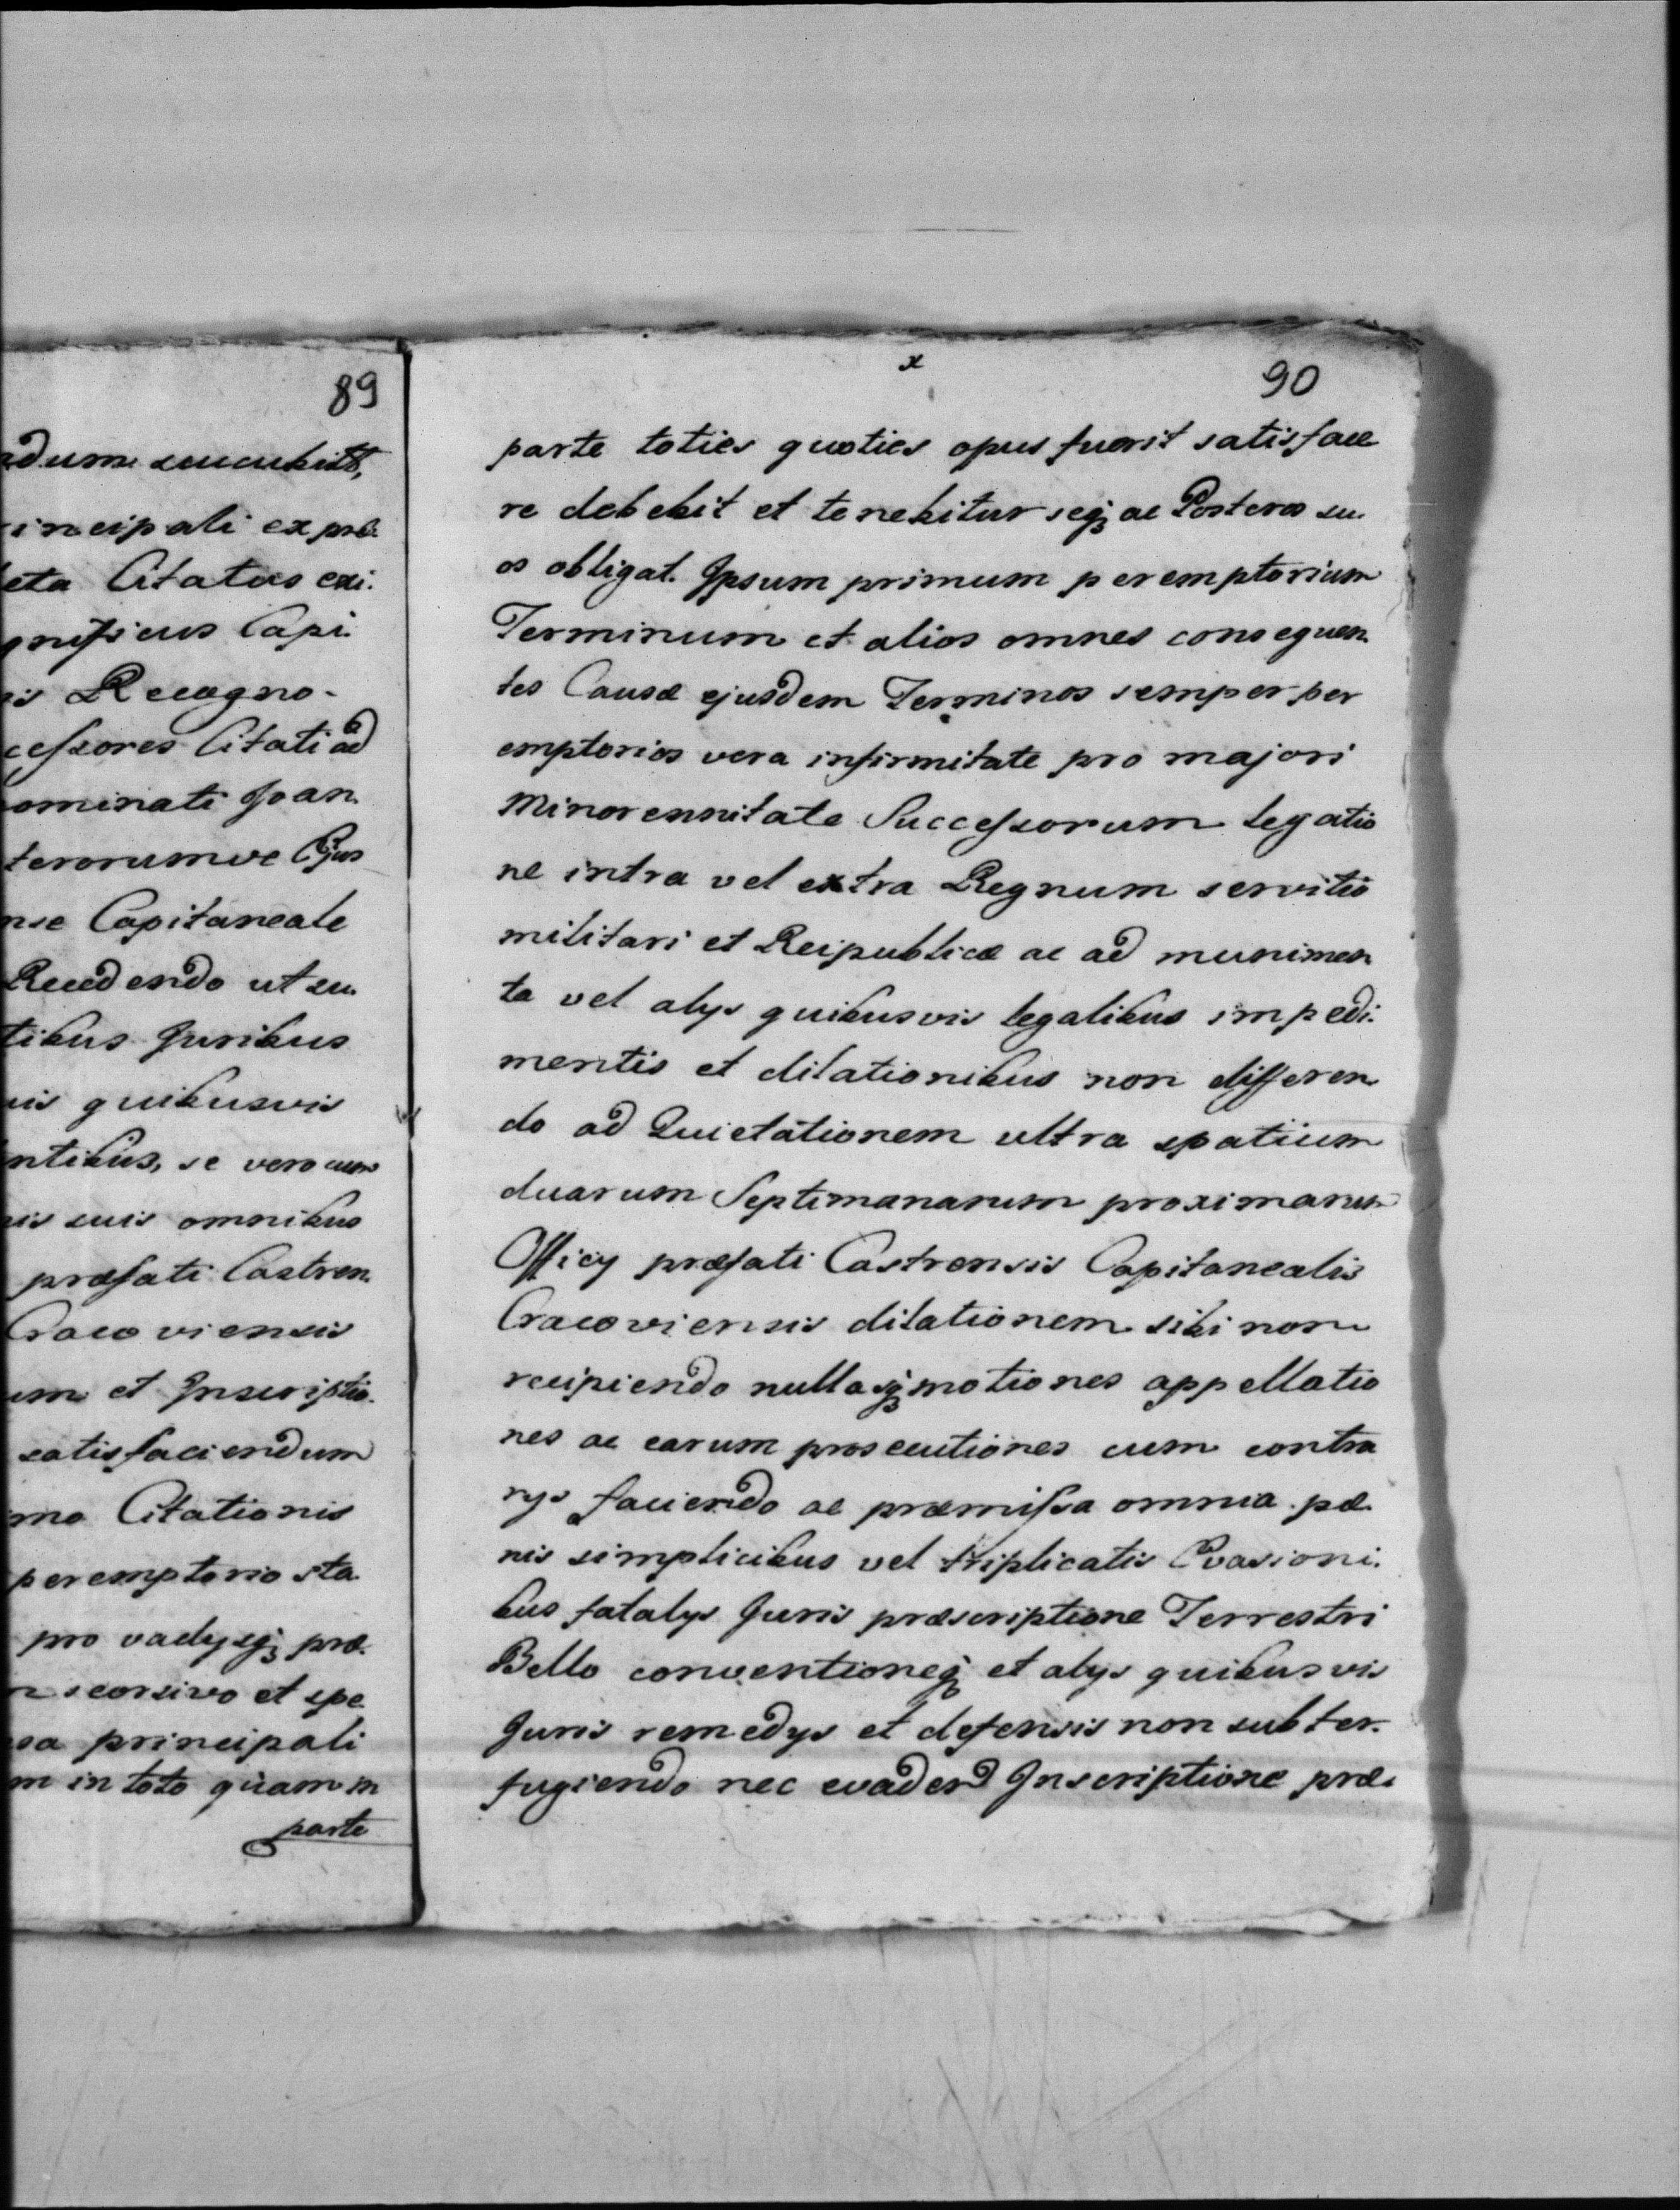 89
dum succubitt,
incipali ex præ
eta Citatus exi.
gnificus Capi.
is Recogno-
cessores Citati ad
ominati Joan
terorumve Ejus
nse Capitaneale
Recedendo ut su
tibus Juribus
uis quibusvis
ntibus, se vero cum
is suis omnibus
præfati Castren
Cracoviensis
um et Inscriptio.
satisfaciendum
mo Citationis
peremptorio sta
pro vadysq præ.
n seorsivo et spe
sa principali
m in toto quam in
parte
x
90
parte toties quoties opus fuerit satisface
re debebit et tenebitur seq ac Posteros su
os obligat. Ipsum primum peremptorium
Terminum et alios omnes consequen
tes Causæ ejusdem Terminos semper per
emptorios vera infirmitate pro majori
Minorennitate Successorum legatio
ne intra vel extra Regnum servitio
militari et Reipublicæ ac ad munimen
ta vel alys quibusvis legalibus impedi.
mentis et dilationibus non differen
do ad Quietationem ultra spatium
duarum Septimanarum proximarum
Officy præfati Castrensis Capitanealis
Cracoviensis dilationem sibi non
recipiendo nullasq motiones appellatio
nes ac earum prosecutiones cum contra
rys faciendo ac præmissa omnia pæ
nis simplicibus vel triplicatis Evasioni.
bus fatalys Juris præscriptione Terrestri
Bello conventioneq et alys quibusvis
Juris remedys et defensis non subter.
fugiendo nec evadend Inscriptione præ